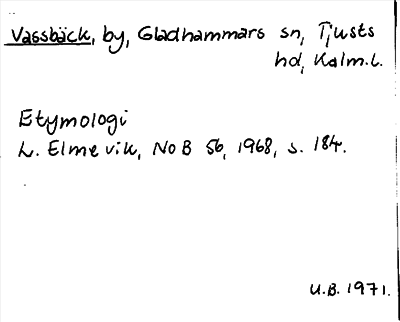 Vassbäck, by, Gladhammars sn, Tjusts
hd, Kalm.l.
Etymologi
L. Elmevik, NoB 56, 1968, s. 184.
U.B. 1971.